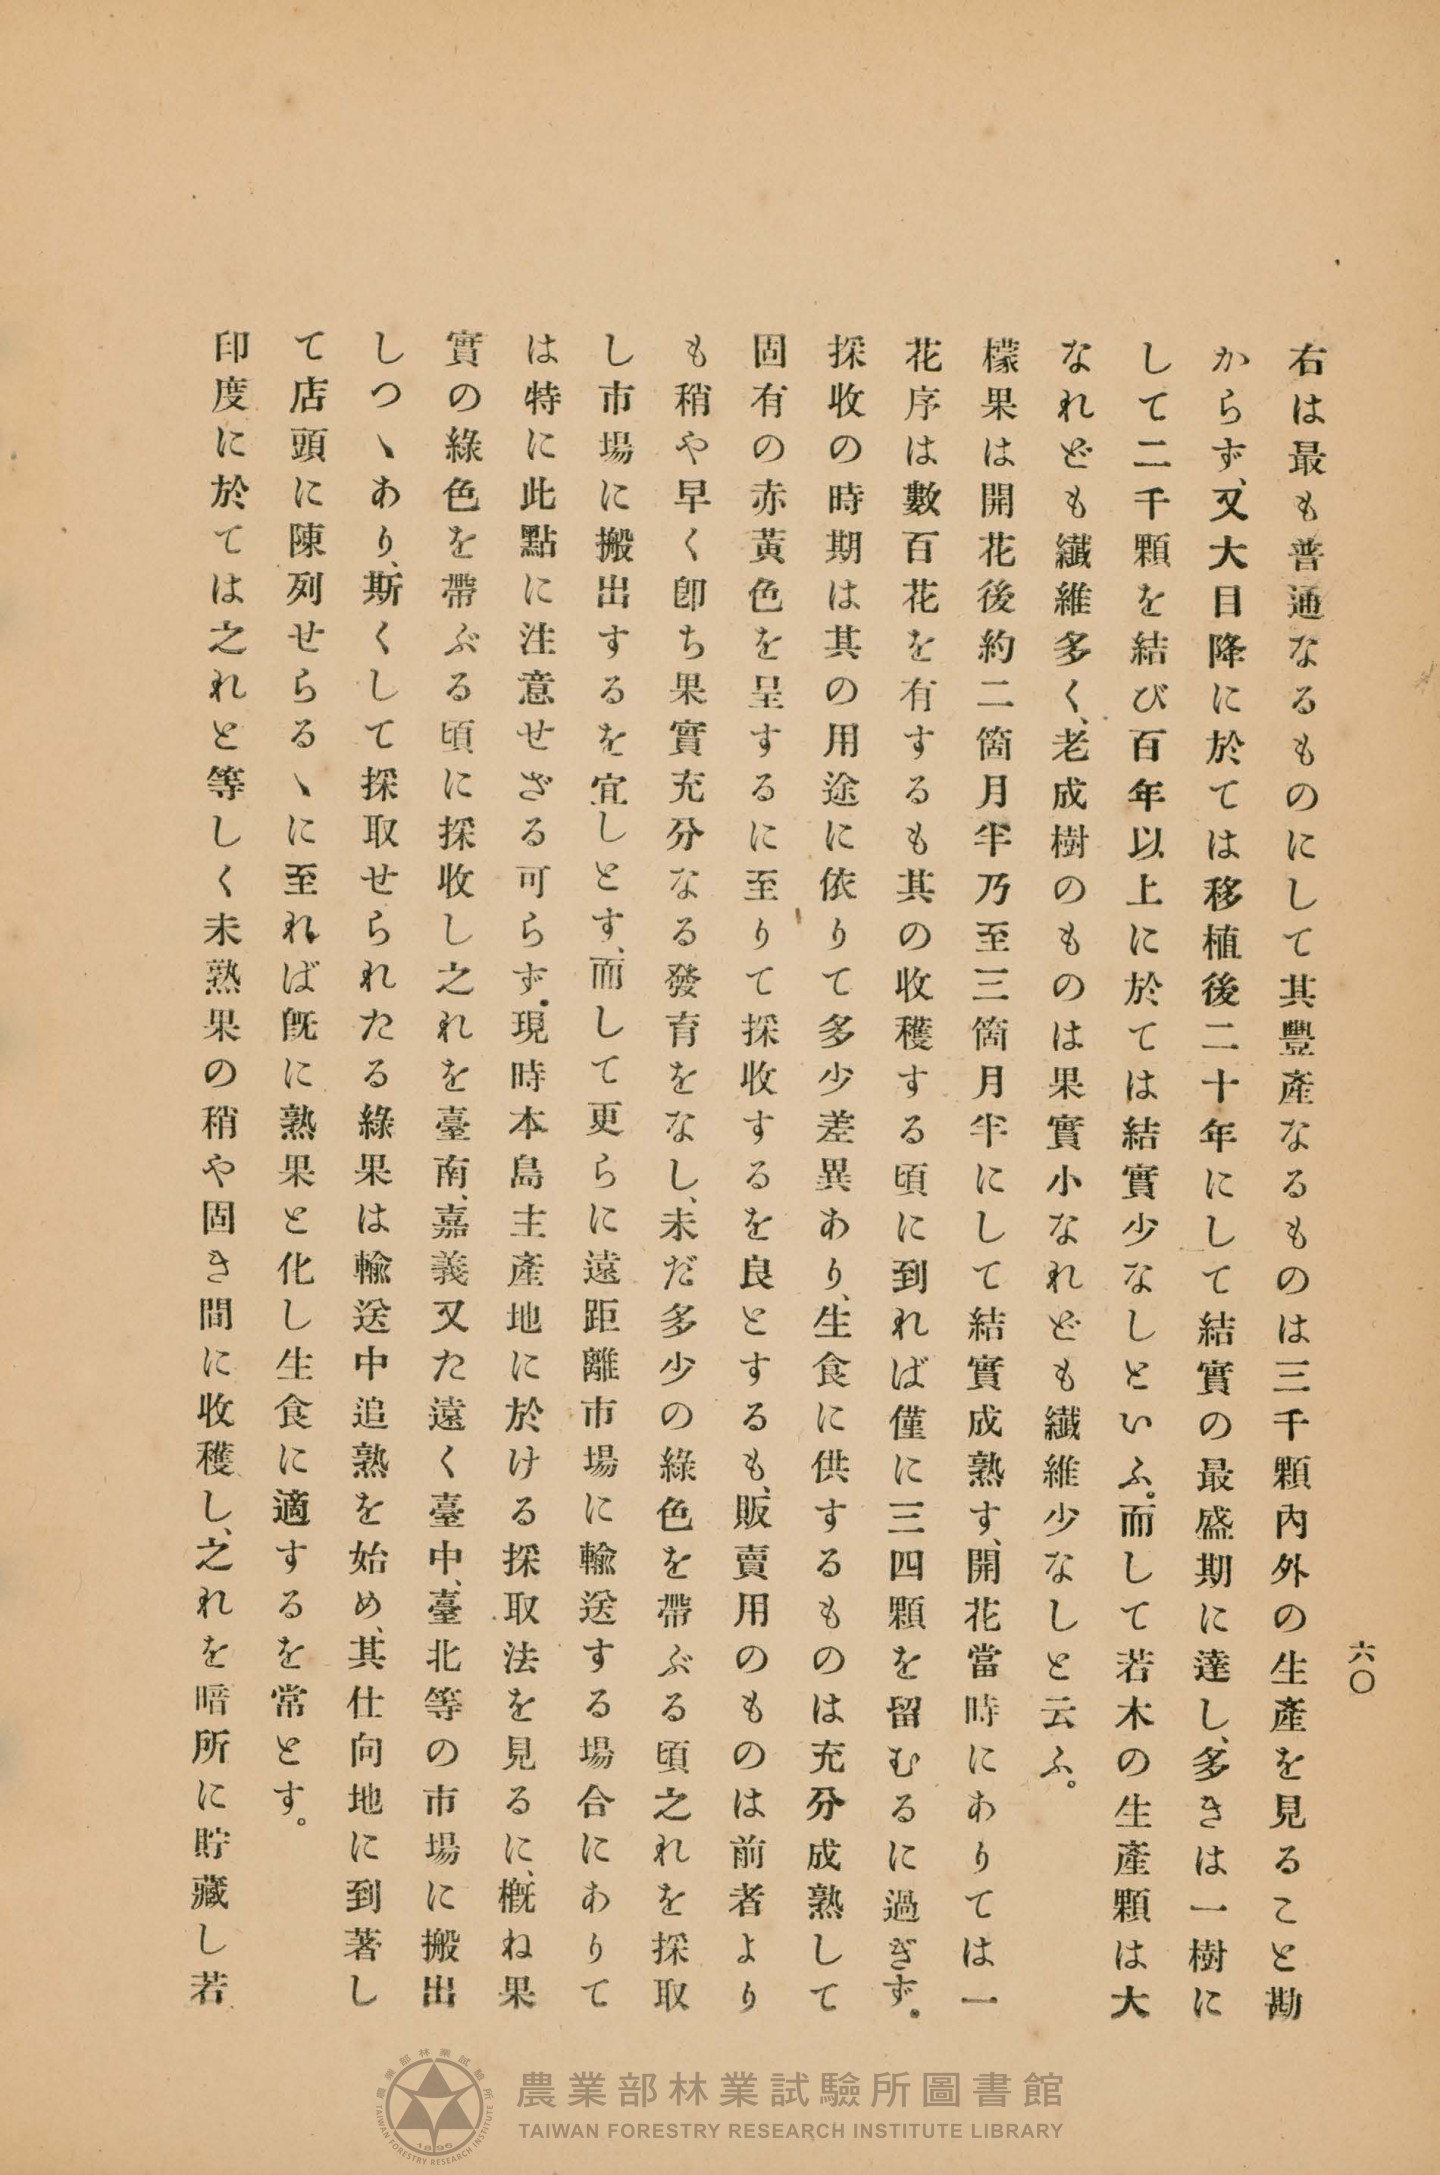 六〇
右は最も普通なるものにして其豐產なるものは三千顆內外の生產を見ること尠
からず、又大目降に於ては移植後二十年にして結實の最盛期に達し、多きは一樹に
して二千顆を結び百年以上に於ては結實少なしといふ。而して若木の生產顆は大
なれども纎維多く、老成樹のものは果實小なれども纎維少なしと云ふ。
檬果は開花後約二箇月半乃至三箇月半にして結實成熟す、開花當時にありては一
花序は數百花を有するも其の收穫する頃に到れば僅に三四顆を留むるに過ぎず。
採收の時期は其の用途に依りて多少差異あり、生食に供するものは充分成熟して
固有の赤黃色を呈するに至りて採收するを良とするも、販賣用のものは前者より
も稍や早く卽ち果實充分なる發育をなし、未だ多少の綠色を帶ぶる頃之れを採取
し市場に搬出するを宜しとす、而して更らに遠距離市場に輸送する場合にありて
は特に此點に注意せざる可らず。現時本島主產地に於ける採取法を見るに、槪ね果
實の綠色を帶ぶる頃に採收し之れを臺南、嘉義又た遠く臺中、臺北等の市場に搬出
しつゝあり、斯くして採取せられたる綠果は輸送中追熟を始め、其仕向地に到著し
て店頭に陳列せらるゝに至れば旣に熟果と化し生食に適するを常とす。
印度に於ては之れと等しく未熟果の稍や固き間に收穫し、之れを暗所に貯藏し若
農業部林業試驗所圖書館
TAIWAN FORESTRY RESEARCH INSTITUTE LIBRARY
農業部林業試驗所
TAIWAN FORESTRY RESEARCH INSTITUTE
1896